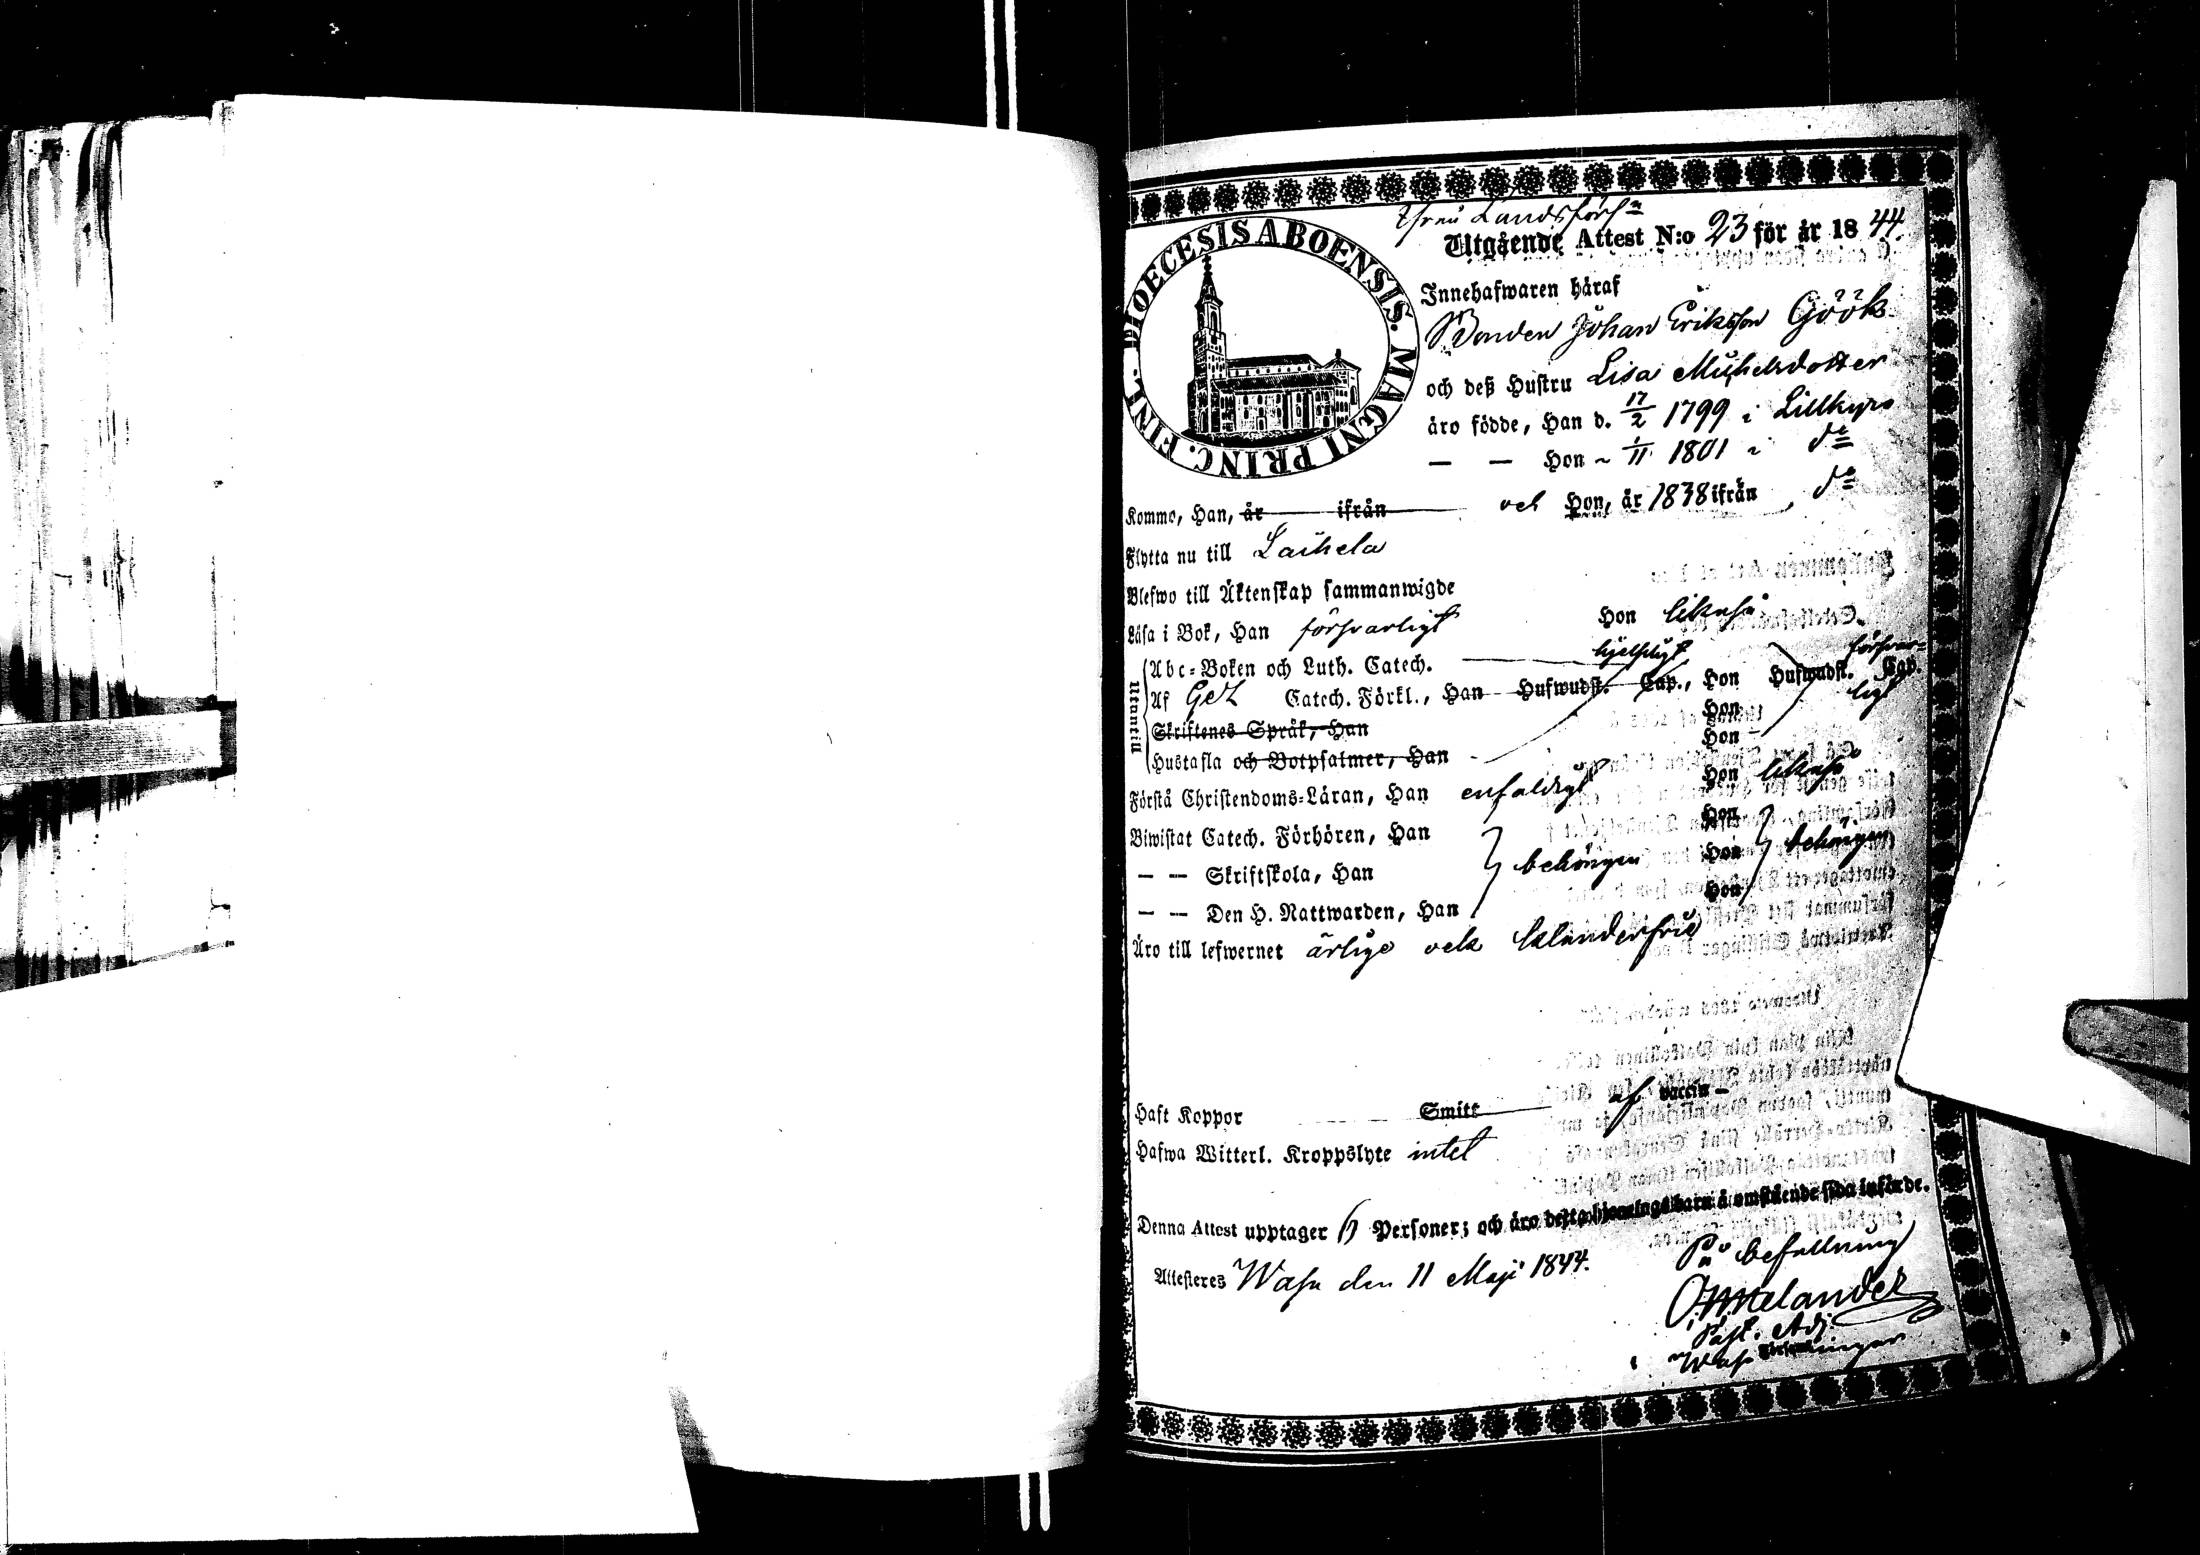 DIOECESIS ABOENSIS. MAGNI PRINC. FINL.
från Landsförs:n
Utgående Attest N:o 23 för år 1844.
Innehafwaren häraf
Bonden Johan Eriksson Göök
och deß Hustru Lisa Michelsdotter
äro födde, Han d. 17/2 1799 i Lillkyro
— — Hon ~ 1/11 1801 " d:o
Komme, Han, år ifrån och Hon, år 1838 ifrån d:o
Flytta nu till Laihela
Blefwo till Äktenskap sammanwigde
Läsa i Bok, Han försvarligt Hon likaså
Utantill
Abc-Boken och Luth. Catech. hjelpligt försvar-
Af Gez Catech. Förkl., Han Hufwudst. Cap., Hon Hufwudst. Cap. ligt
Skriftenes Språk, Han Hon
Hustafla och Botpsalmer, Han Hon
Förstå Christendoms-Läran, Han enfaldigt Hon likaså
Biwistat Catech. Förhören, Han Hon
— — Skriftskola, Han behörigen Hon behörigen
— — Den H. Nattwarden, Han Hon
Äro till lefwernet ärlige och klanderfrie
Haft Koppor Smitt af vaccin
Hafwa Witterl. Kroppslyte intet
Denna Attest upptager Personer; och äro deßa å omstående sida införde.
Attesteras Wasa den 11 Maji 1844.
På befallning
Melander
Past. Adj.
i Wasa